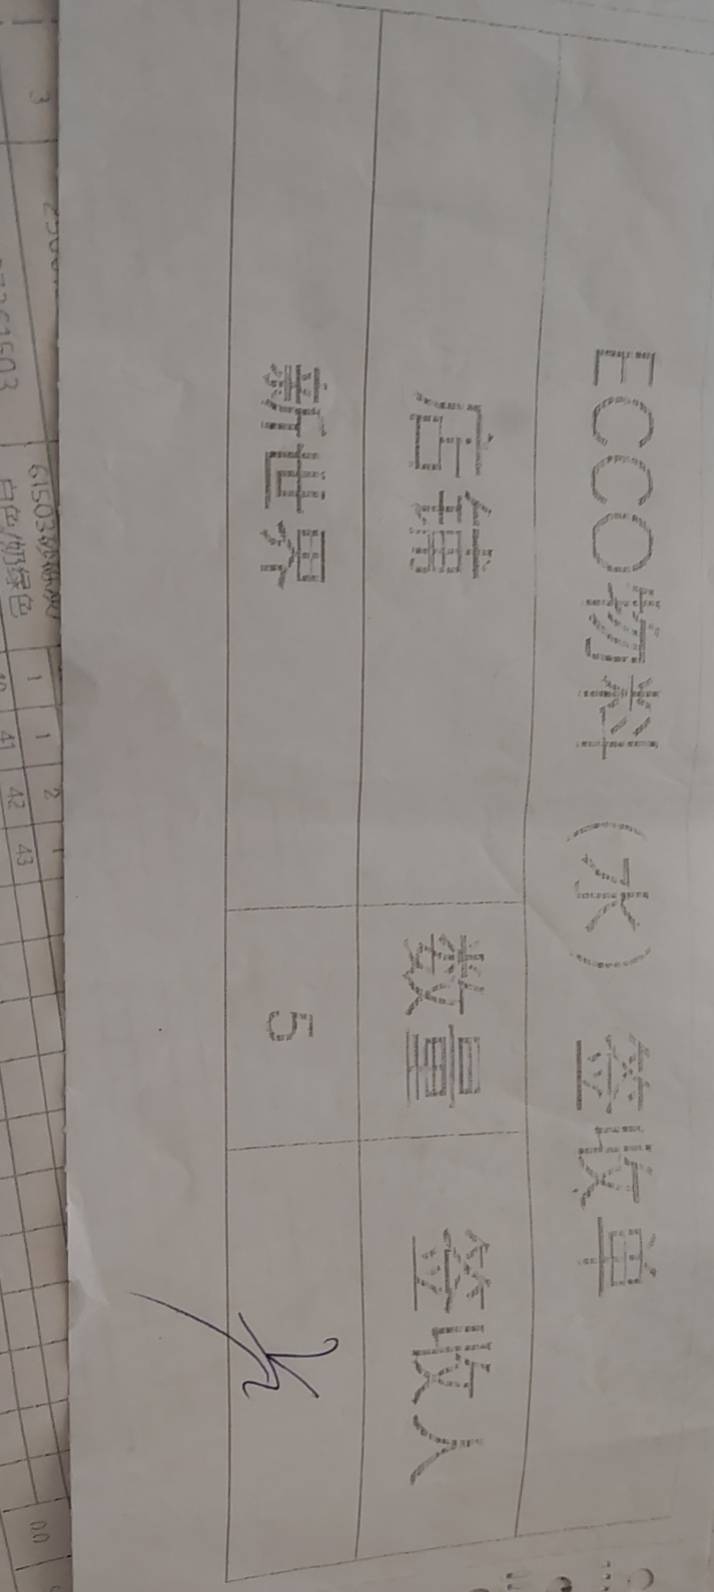 ECCO物料（水）签收单
店铺 数量 签收人
新世界 5
3
61503
白色/奶绿色
1 1 2 1
41 42 43
00